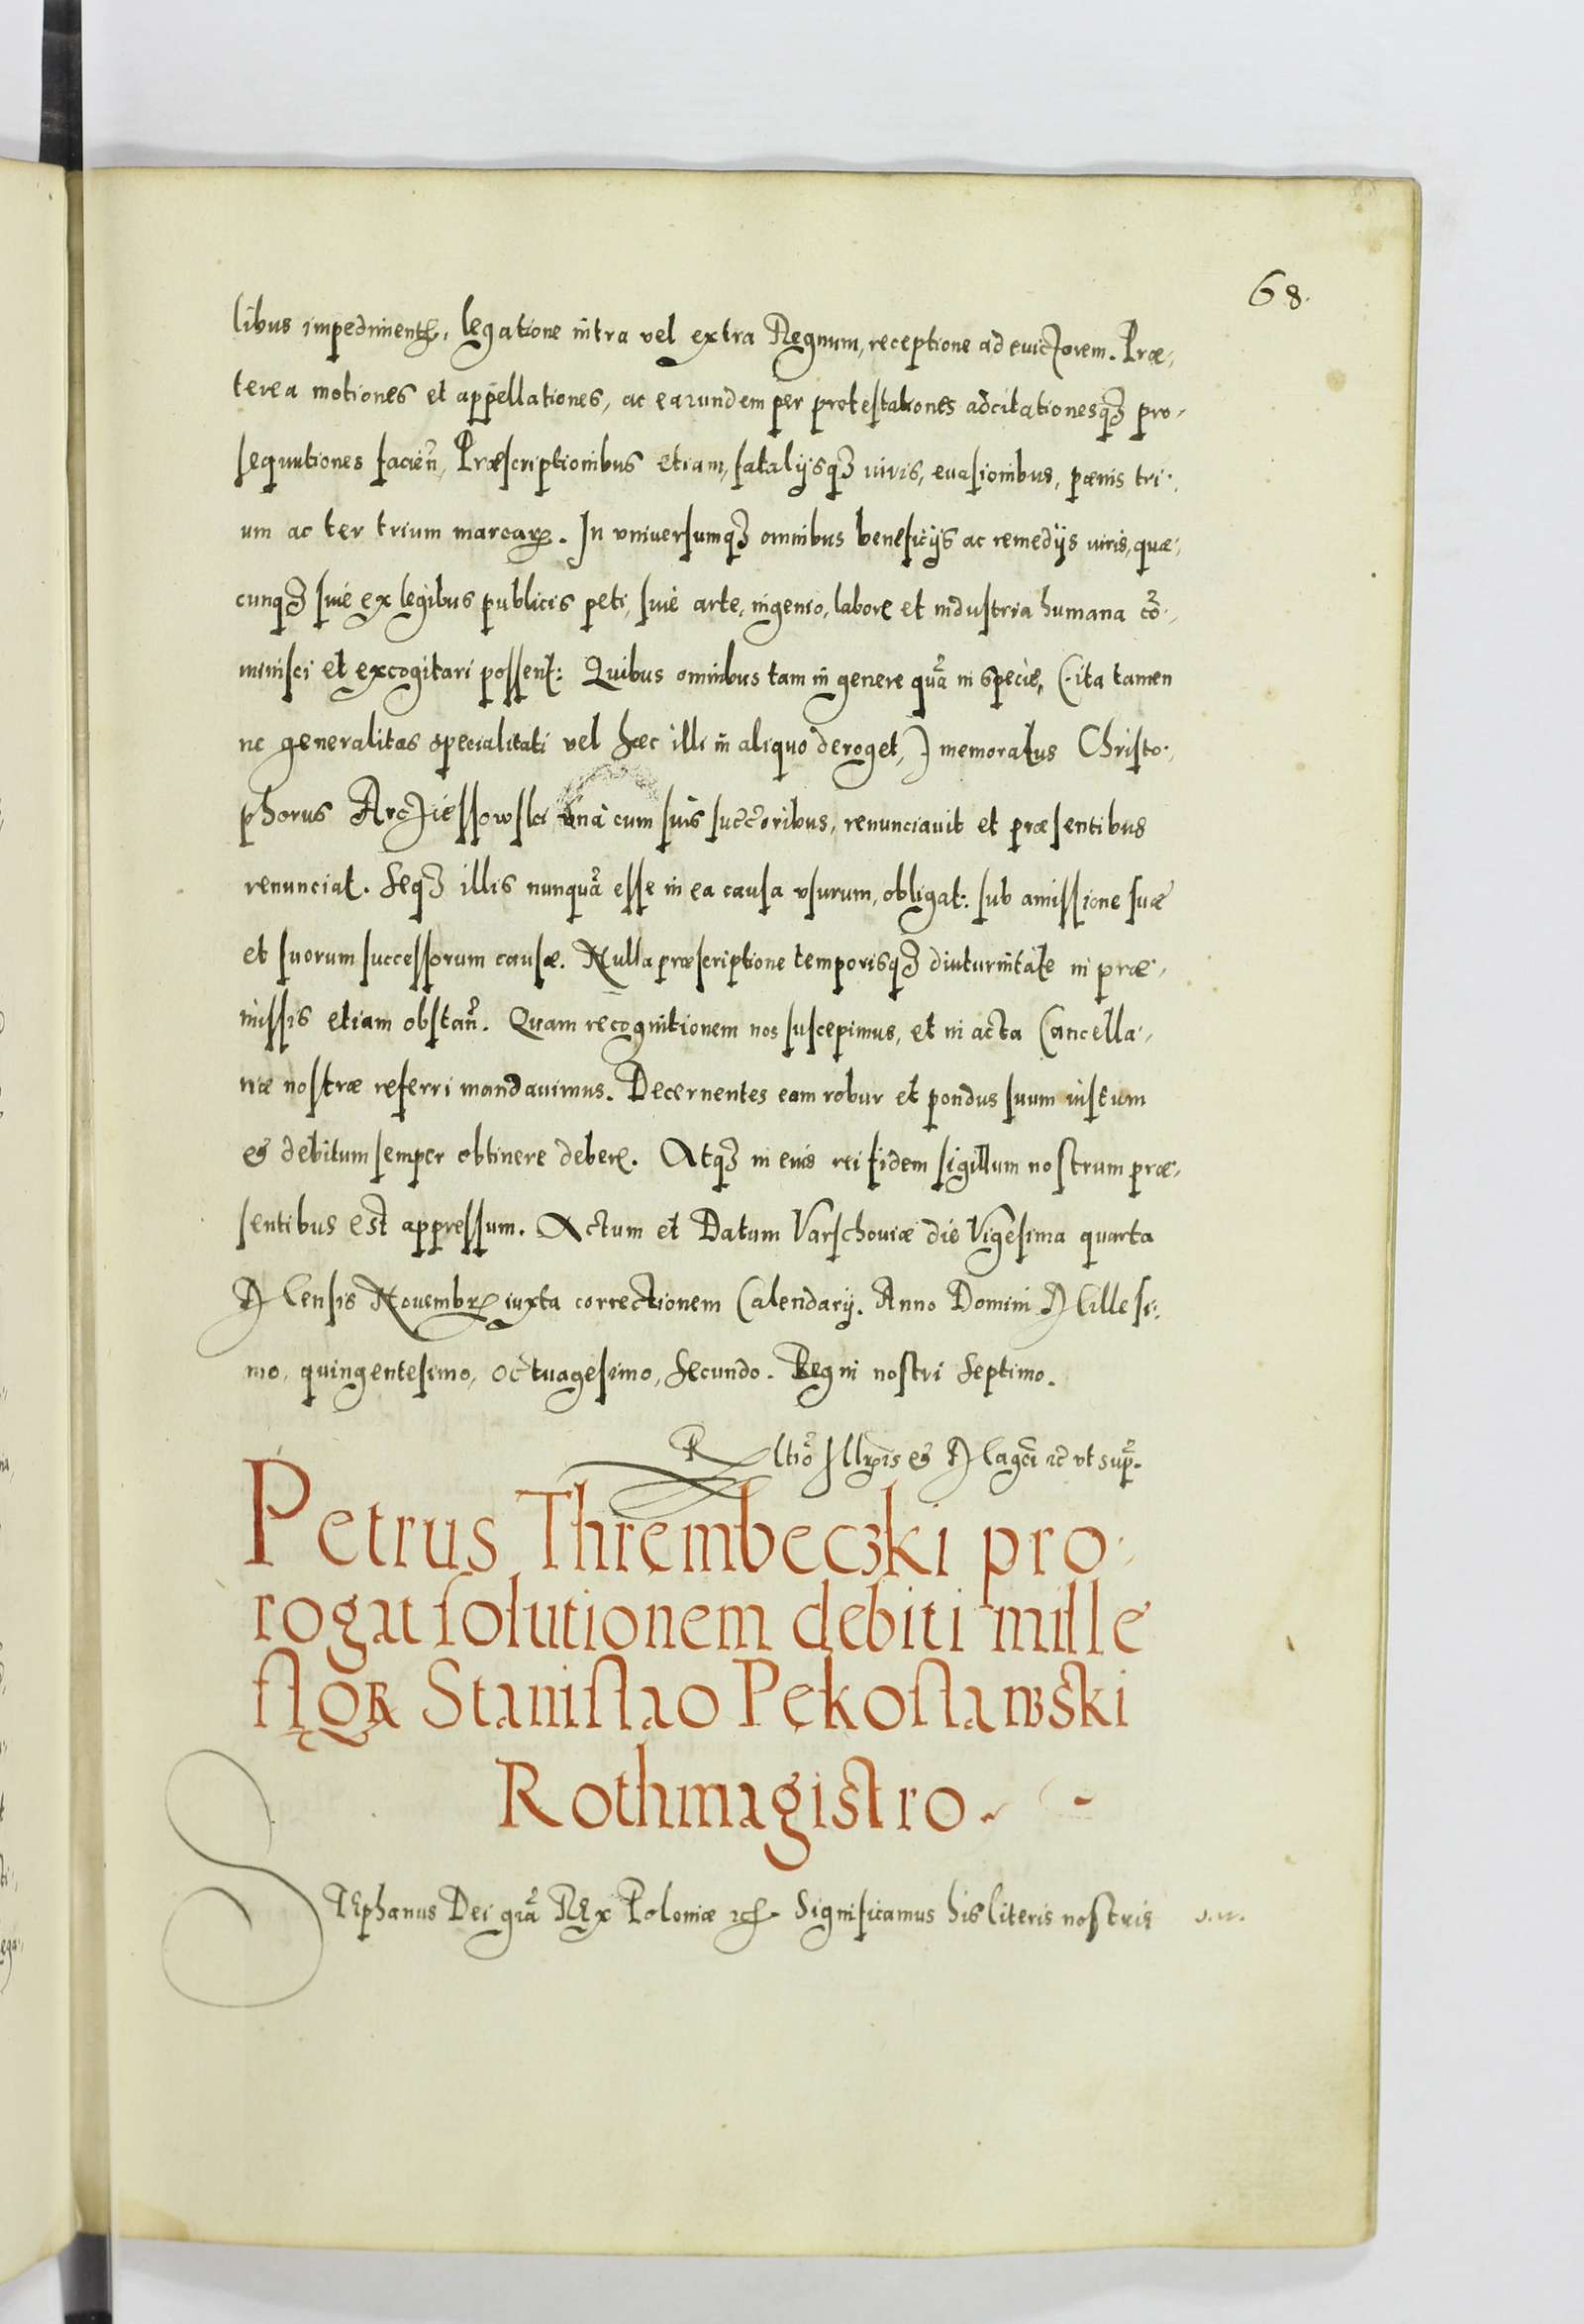 68.
libus impediment, legatione intra vel extra Regnum, receptione ad evictorem. Præ-
terea motiones et appellationes, ac earundem per protestationes adcitationesqꝫ pro-
sequutiones facień, Præscriptionibus etiam, fatalijsqꝫ iuris, euasionibus, pœnis tri-
um ac ter trium marcaꝝ. In vniuersumqꝫ omnibus beneficijs ac remedijs iuris, quæ-
cunqꝫ siue ex legibus publicis peti, siue arte, ingenio, labore et industria humana cõ-
minisci et excogitari possent: Quibus omnibus tam in genere quã in specie, (ita tamen
ne generalitas specialitati vel hæc illi in aliquo deroget,) memoratus Christo-
phorus Arcziessowski vna cum suis succ̃oribus, renunciauit et præsentibus
renunciat. Seqꝫ illis nunquã esse in ea causa vsurum, obligat: sub amissione suæ
et suorum successorum causæ. Nulla præscriptione temporisqꝫ diuturnitate in præ-
missis etiam obstañ. Quam recognitionem nos suscepimus, et in acta Cancella-
riæ nostræ referri mandauimus. Decernentes eam robur et pondus suum iustum
et debitum semper obtinere debere. Atqꝫ in euis rei fidem sigillum nostrum præ-
sentibus est appressum. Actum et Datum Varschouiæ die Vigesima quarta
Mensis Novembꝝ iuxta correctionem Calendarij. Anno Domini Millesi-
mo, quingentesimo, octuagesimo, Secundo. Regni nostri Septimo.
Rltiõ Illꝝis et Magci ꝛc̃ vt supr̃.
Petrus Thrembeczki pro-
rogat solutionem debiti mille
floꝝ Stanislao Pękoslawski
Rothmagistro.
STEphanus Dei grã REx Poloniæ ꝛc. Significamus his literis nostris